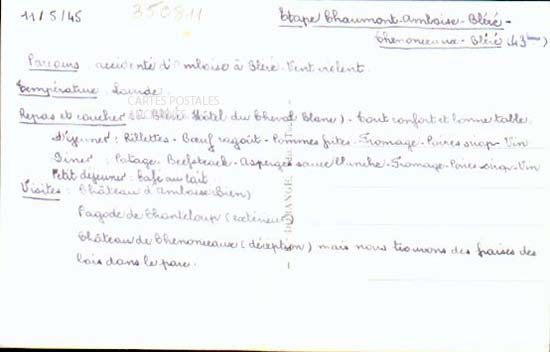 11/5/45
350811
Etape Chaumont-Amboise-Bléré-
Chenonceaux-Bléré (43 kms)
Parcours accidenté d'Amboise à Bléré. Vent violent.
Température lourde.
CARTES POSTALES
Repas et coucher (à Bléré Hôtel du Cheval Blanc). tout confort et bonne table.
Déjeuner : Rillettes - Bœuf ragoût - Pommes frites - Fromage - Poires sirop - Vin
Diner : Potage - Beefsteack - Asperges sauce blanche - Fromage - Poires sirop - Vin
Petit déjeuner : Café au lait
Visites : Château d'Amboise (Bien)
Pagode de Chanteloup (extérieur)
Château de Chenonceaux (déception) mais nous trouvons des fraises des
bois dans le parc.